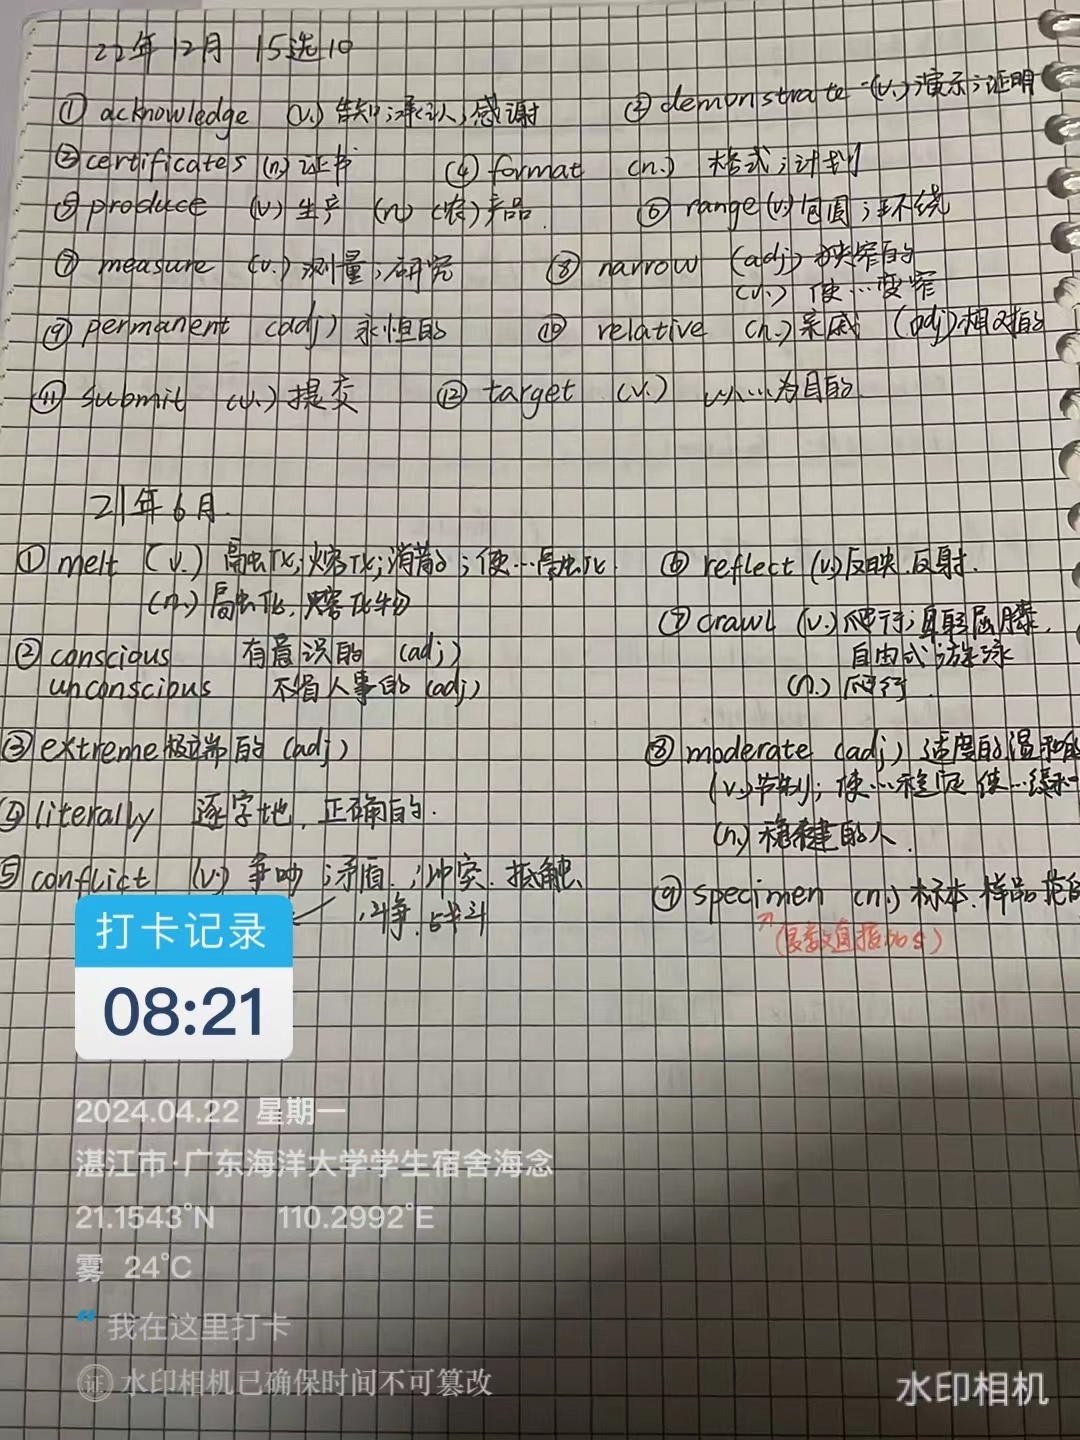 22年12月 15选10
① acknowledge (v.) 告知;承认;感谢 ② demonstrate (v.)演示;证明
③ certificates (n) 证书 ④ format (n.) 格式;计划
⑤ produce (v) 生产 (n) (农)产品 ⑥ range (v) 包围;环绕
⑦ measure (v.) 测量;研究 ⑧ narrow (adj) 狭窄的
(v.) 使…变窄
⑨ permanent (adj) 永恒的 ⑩ relative (n.)亲戚 (adj)相对的
⑪ submit (v.) 提交 ⑫ target (v.) 以…为目的
21年6月.
① melt (v.) 融化;熔化;消散;使…融化. ⑥ reflect (v)反映.反射.
(n.) 融化,熔化物
⑦ crawl (v.) 爬行;卑躬屈膝.
② conscious 有意识的 (adj) 自由式游泳
unconscious 不省人事的 (adj) (n.) 爬行.
③ extreme 极端的 (adj) ⑧ moderate (adj) 适度的温和的
(v.)节制;使…稳定 使…缓和
④ literally 逐字地,正确的.
(n.) 稳健的人.
⑤ conflict (v.) 争吵;矛盾,;冲突.抵触 ⑨ specimen (n.) 标本.样品
斗争.战斗
(复数直接加s)
打卡记录
08:21
2024.04.22 星期一
湛江市·广东海洋大学学生宿舍海念
21.1543°N 110.2992°E
雾 24°C
我在这里打卡
证 水印相机已确保时间不可篡改
水印相机